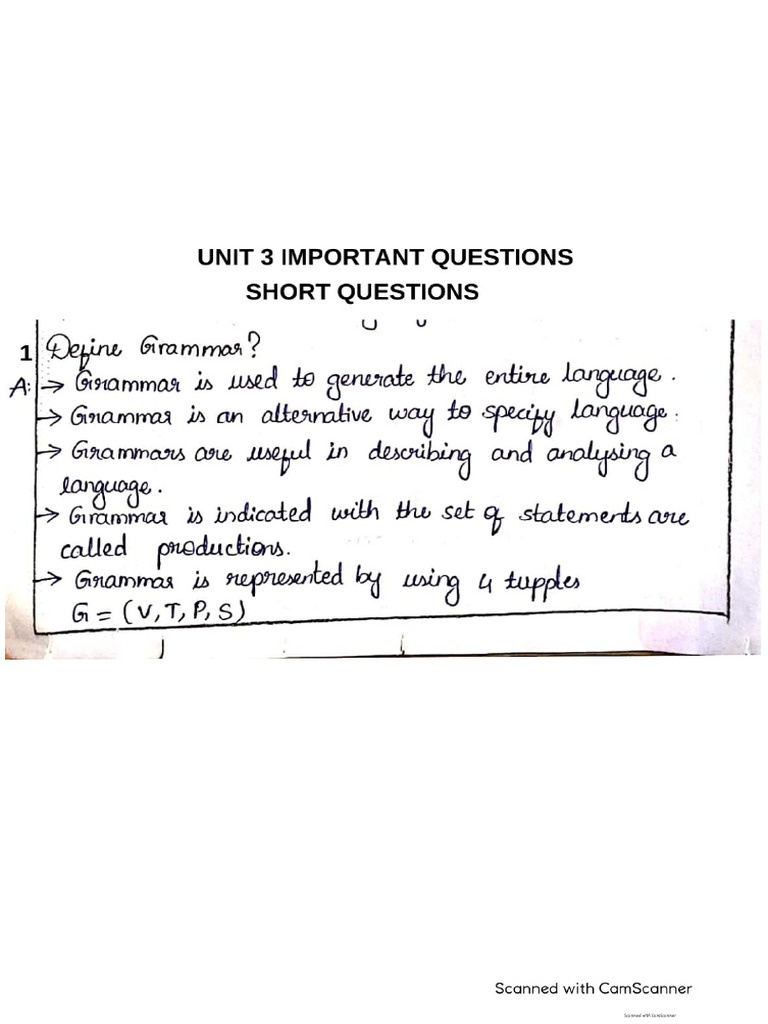 UNIT 3 IMPORTANT QUESTIONS
SHORT QUESTIONS
1 Define Grammar?
A: → Grammar is used to generate the entire language.
→ Grammar is an alternative way to specify language.
→ Grammars are useful in describing and analysing a
language.
→ Grammar is indicated with the set of statements are
called productions.
→ Grammar is represented by using 4 tupples
G = (V, T, P, S)
Scanned with CamScanner
Scanned with CamScanner